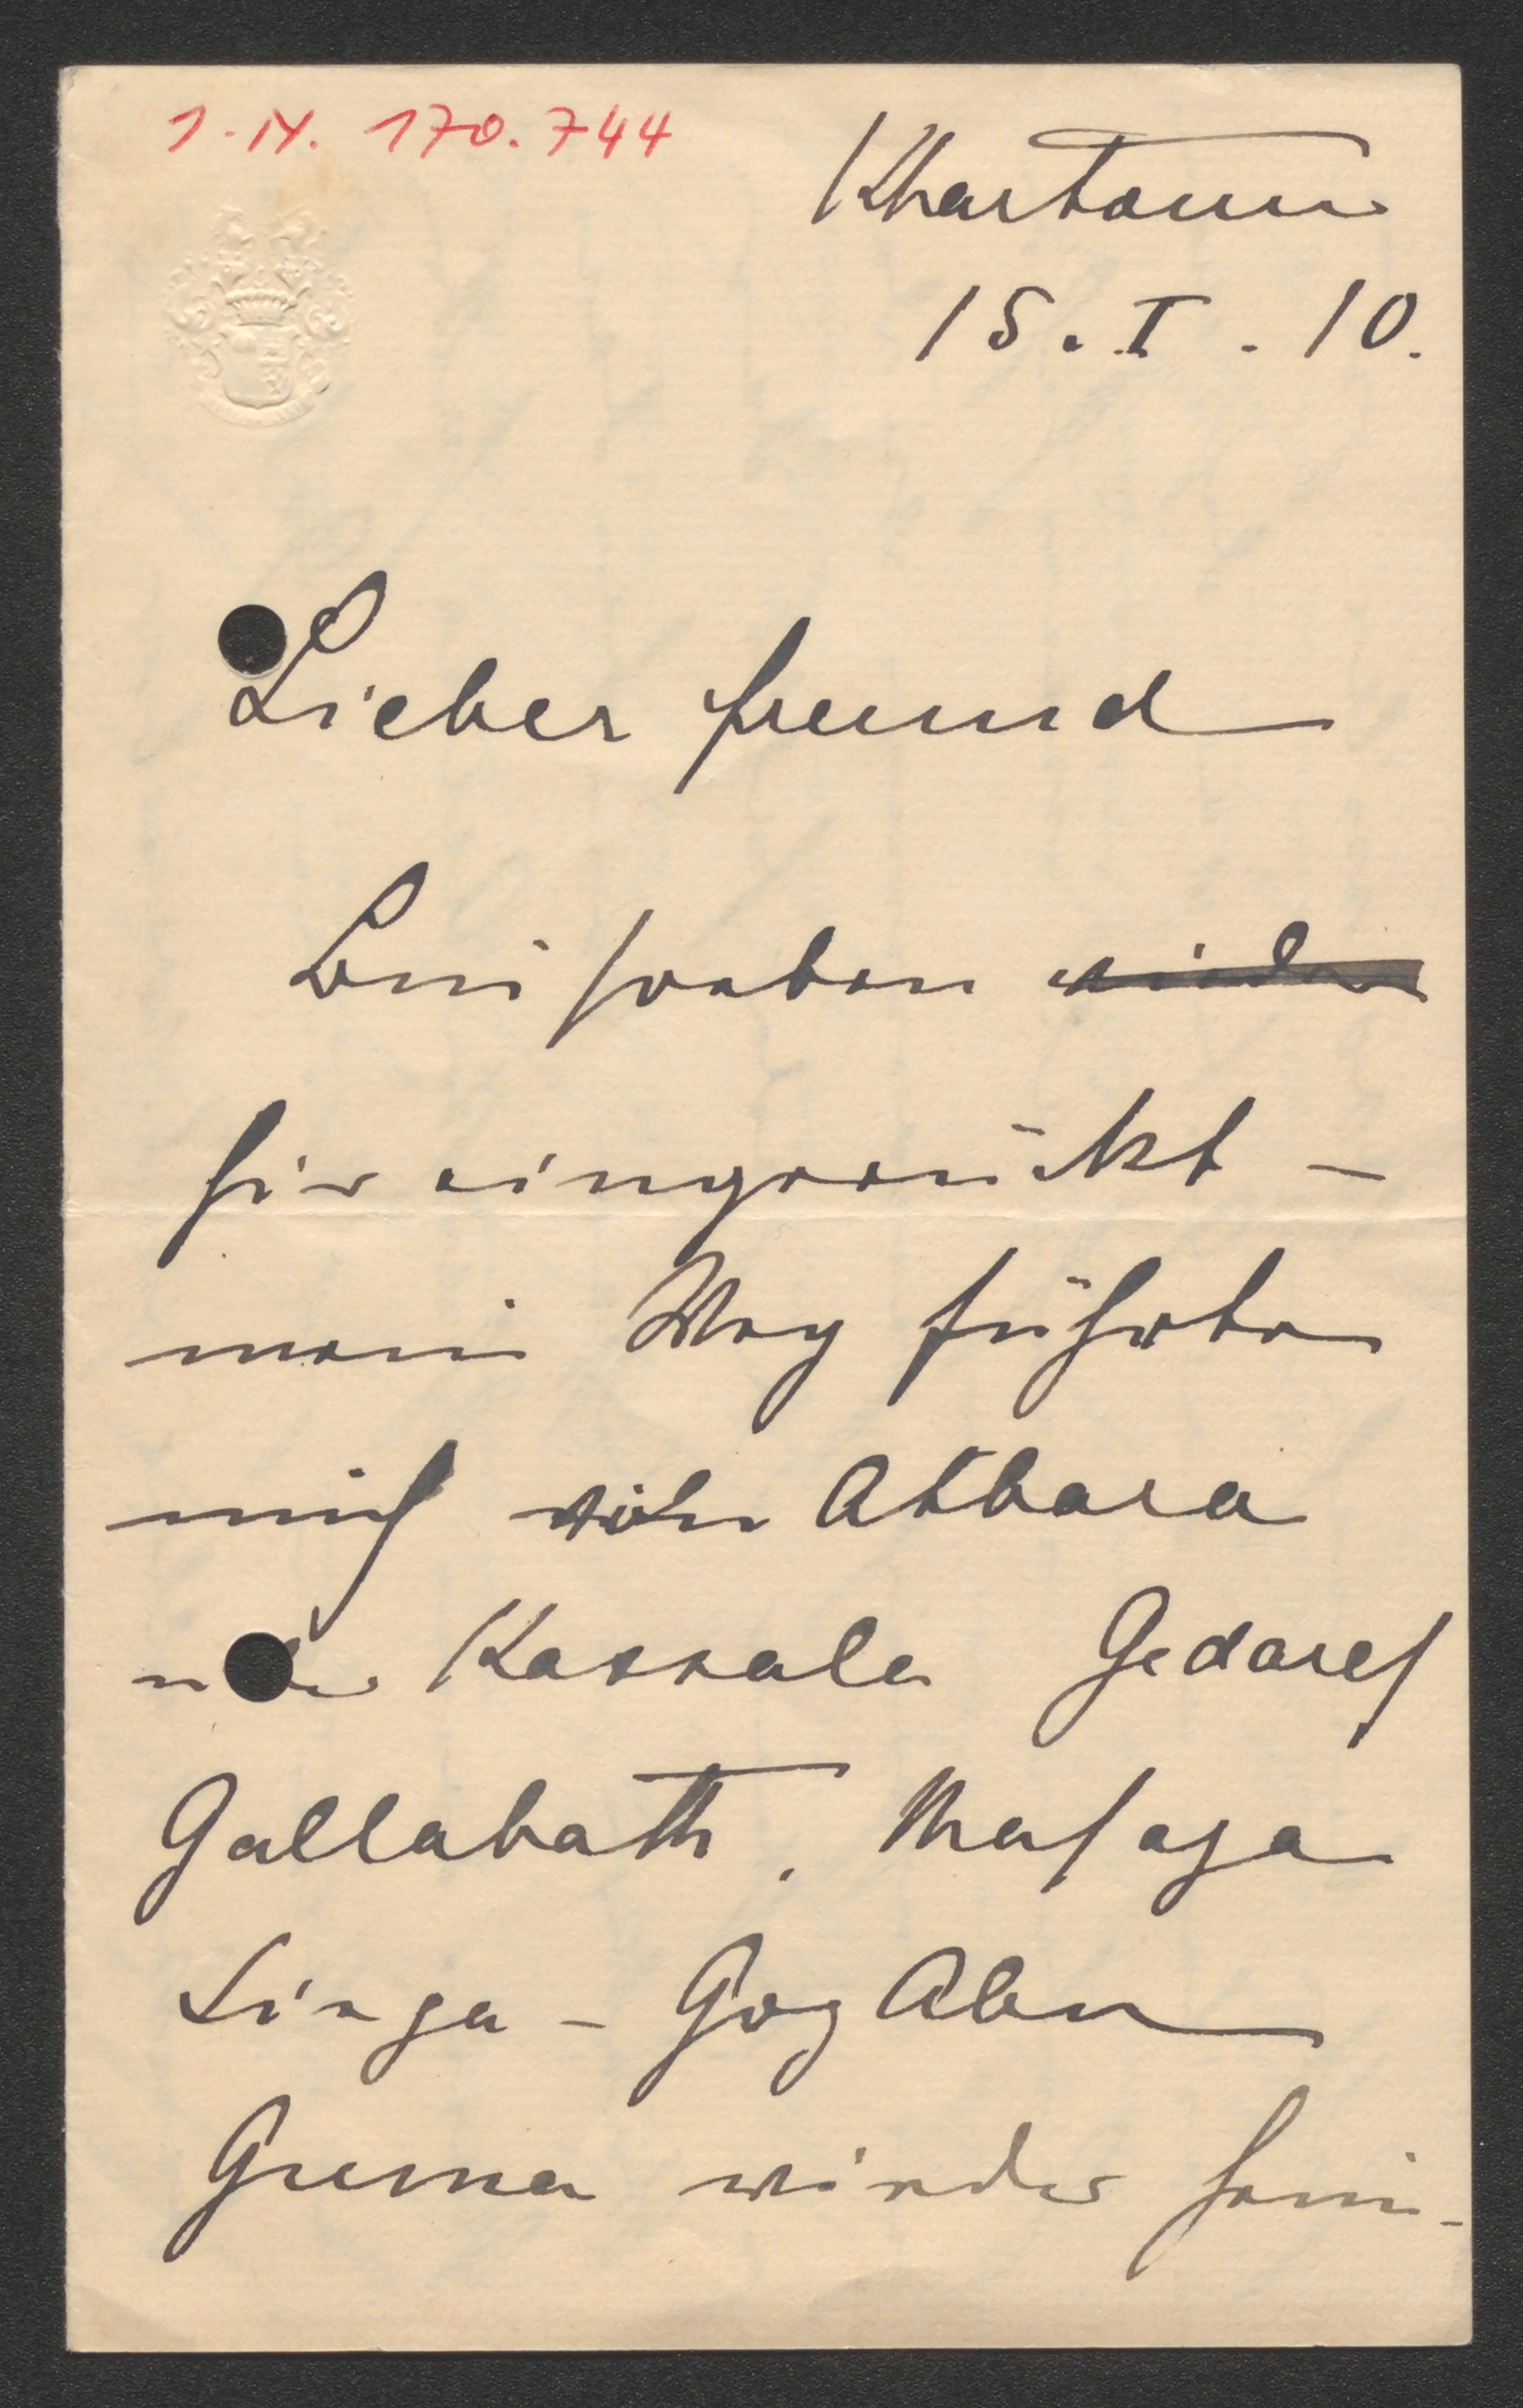 I.N. 170.744
Khartoum
15.I.10.
Lieber Freund
Bin soeben wieder
hier eingerückt –
mein Weg führte
mich über Atbara
Kassala Gedaref
Gallabath. Mafaga
Singa – Goz Abu
Guma wieder heim-